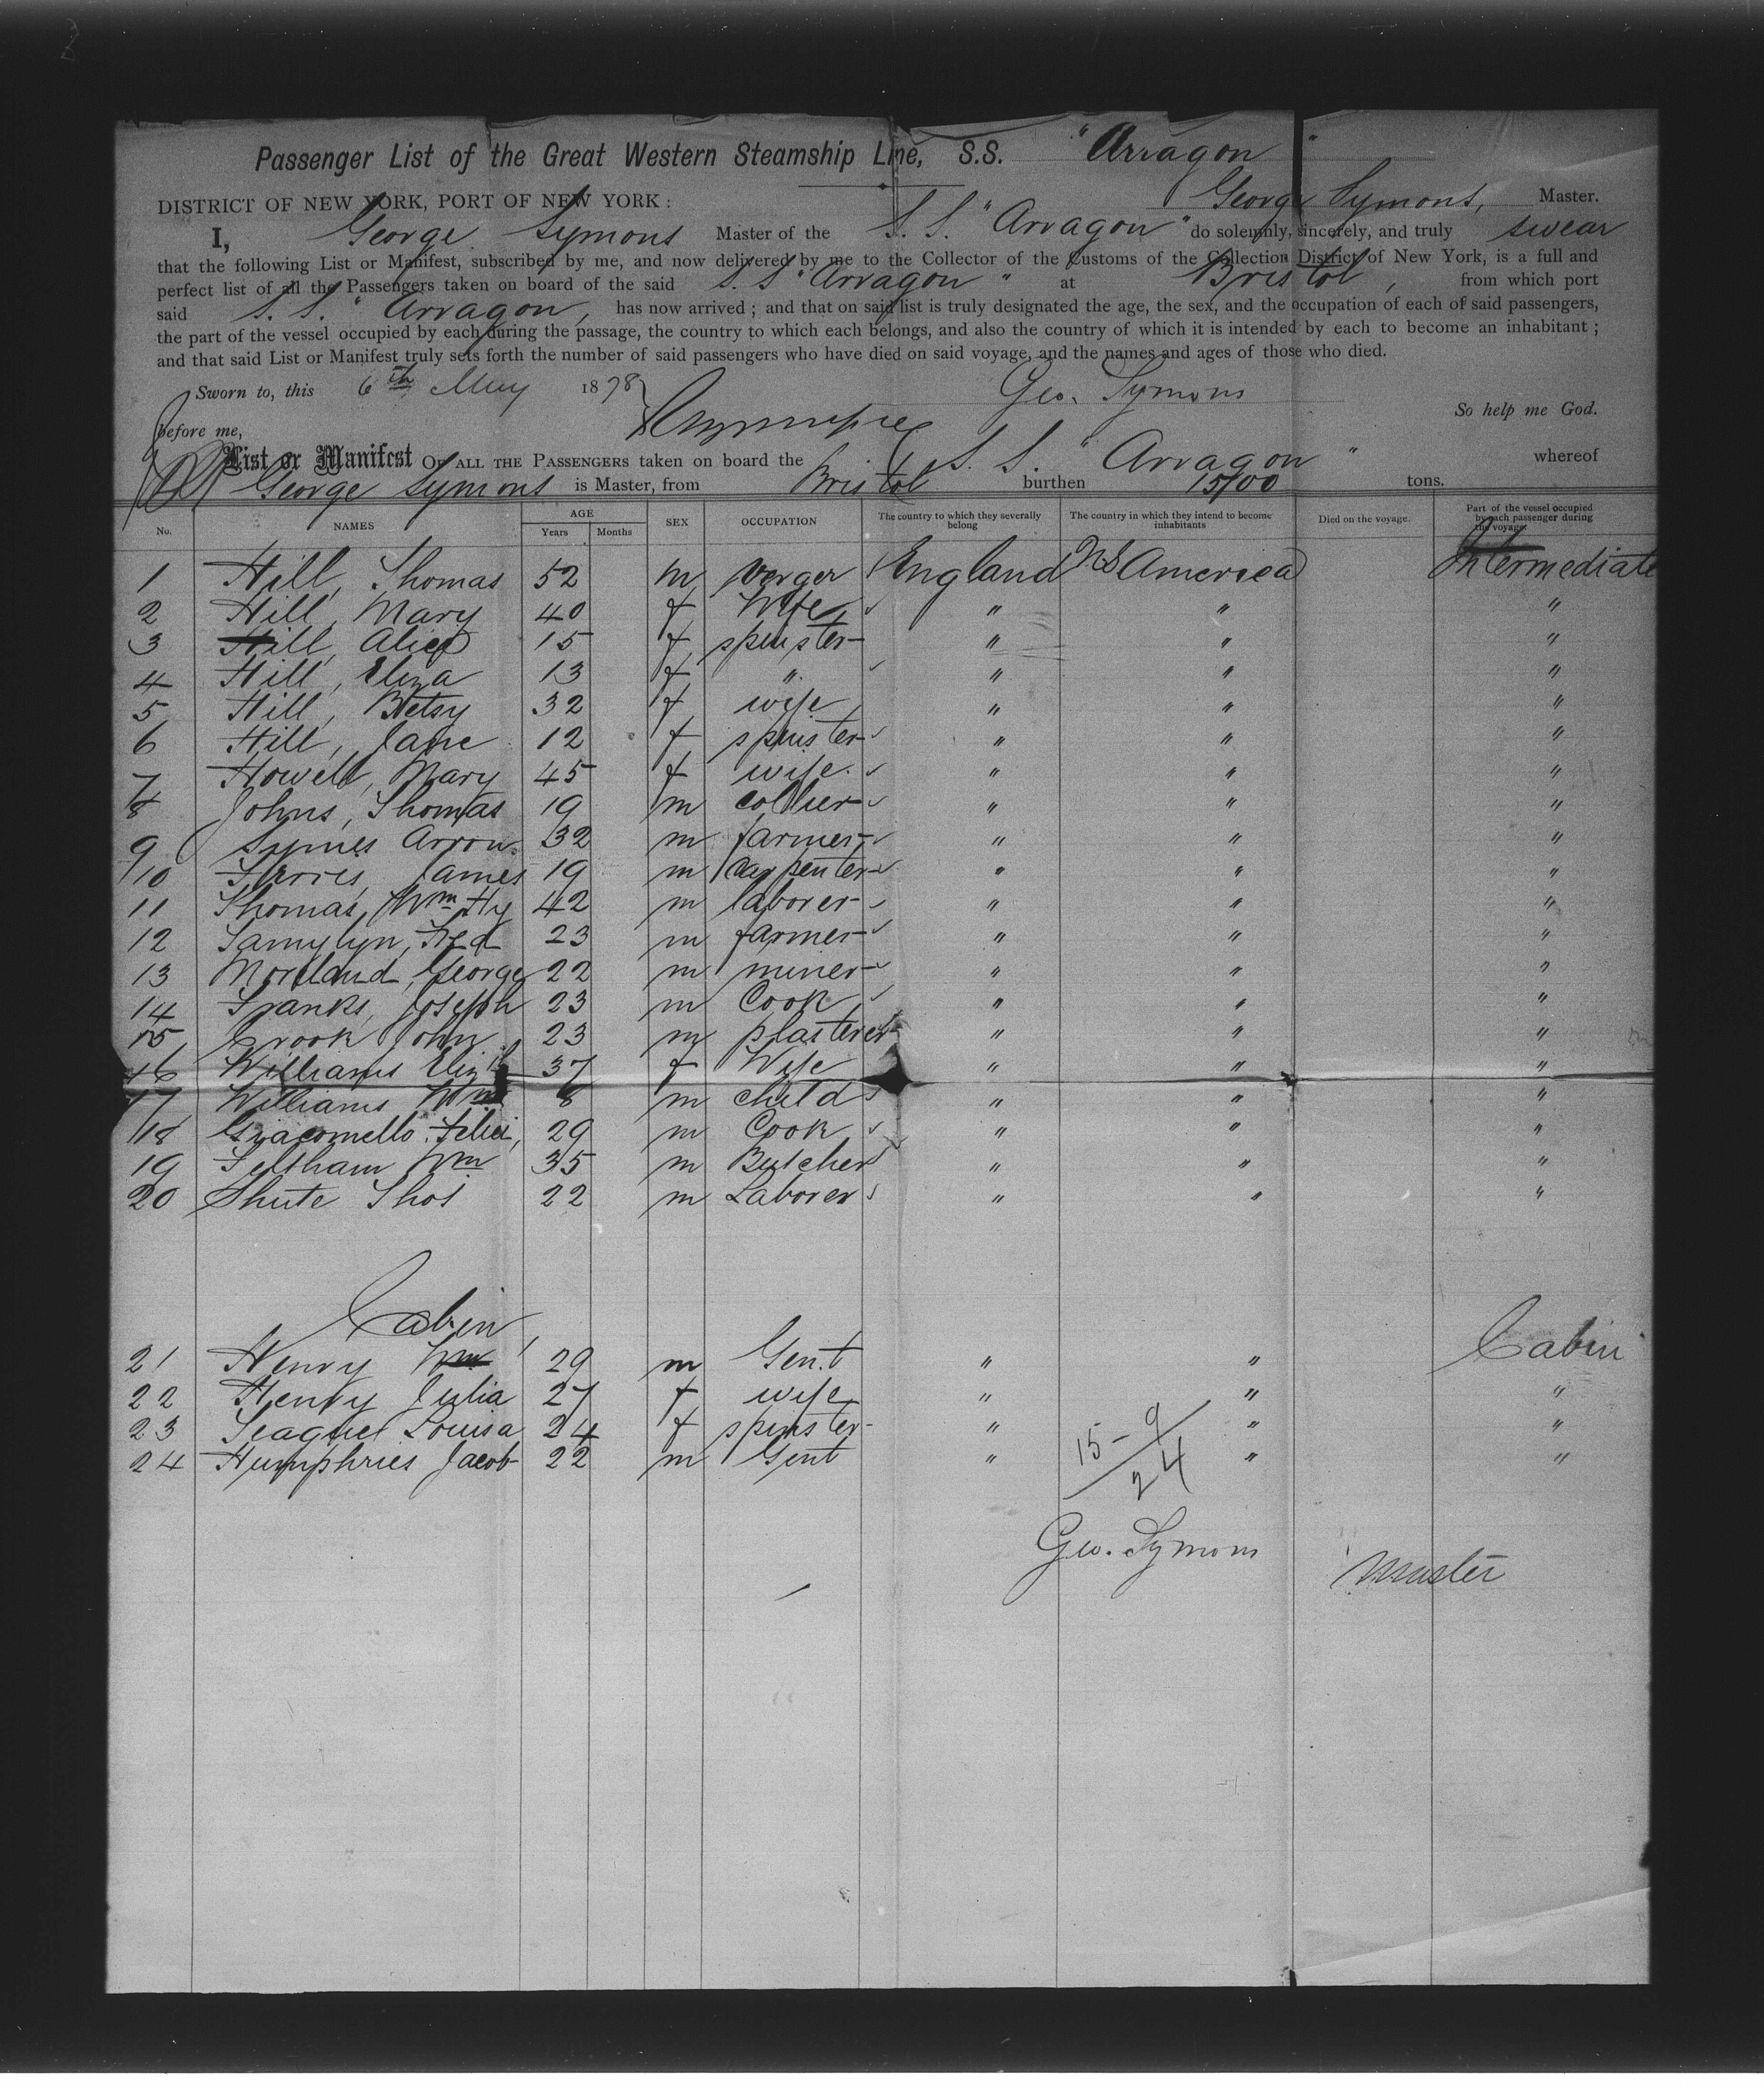 Passenger List of the Great Western Steamship Line, S.S. "Arragon"
George Symons, Master.
DISTRICT OF NEW YORK, PORT OF NEW YORK:
I, George Symons Master of the S.S. "Arragon" do solemnly, sincerely, and truly swear
that the following List or Manifest, subscribed by me, and now delivered by me to the Collector of the Customs of the Collection District of New York, is a full and
perfect list of all the Passengers taken on board of the said S.S "Arragon" at Bristol, from which port
said S.S. "Arragon, has now arrived; and that on said list is truly designated the age, the sex, and the occupation of each of said passengers,
the part of the vessel occupied by each during the passage, the country to which each belongs, and also the country of which it is intended by each to become an inhabitant;
and that said List or Manifest truly sets forth the number of said passengers who have died on said voyage, and the names and ages of those who died.
Sworn to, this 6th May 1878 Geo. Symons
So help me God.
before me,
List or Manifest OF ALL THE PASSENGERS taken on board the S.S. "Arragon" whereof
George Symons is Master, from Bristol burthen 1500 tons.
No. NAMES AGE Years Months SEX OCCUPATION The country to which they severally belong The country in which they intend to become inhabitants Died on the voyage. Part of the vessel occupied by each passenger during the voyage.
1 Hill, Thomas 52 m verger England US America Intermediate
2 Hill, Mary 40 f Wife " " "
3 Hill, Alice 15 f spinster " " "
4 Hill, Eliza 13 f " " " "
5 Hill, Betsy 32 f wife " " "
6 Hill, Jane 12 f spinster " " "
7 Howell, Mary 45 f wife. " " "
8 Johns, Thomas 19 m collier " " "
9 Symes Arron. 32 m farmer " " "
10 James 19 m carpenter " " "
11 Thomas, Wm Hy 42 m laborer " " "
12 Fred 23 m farmer " " "
13 George 22 m miner " " "
14 Franks, Joseph 23 m Cook " " "
15 Crook John 23 m plasterer " " "
16 Williams Elizth 37 f Wife " " "
17 Williams Wm 8 m child " " "
18 Giacomello Felici, 29 m Cook " " "
19 Feltham Wm 35 m Butcher " " "
20 Shute Thos 22 m Laborer " " "
Cabin
21 Henry Wm 29 m Gent " " Cabin
22 Henry Julia 27 f wife " " "
23 Louisa 24 f spinster " " "
24 Humphries Jacob 22 m Gent " " "
15-9
24
Geo. Symons Master